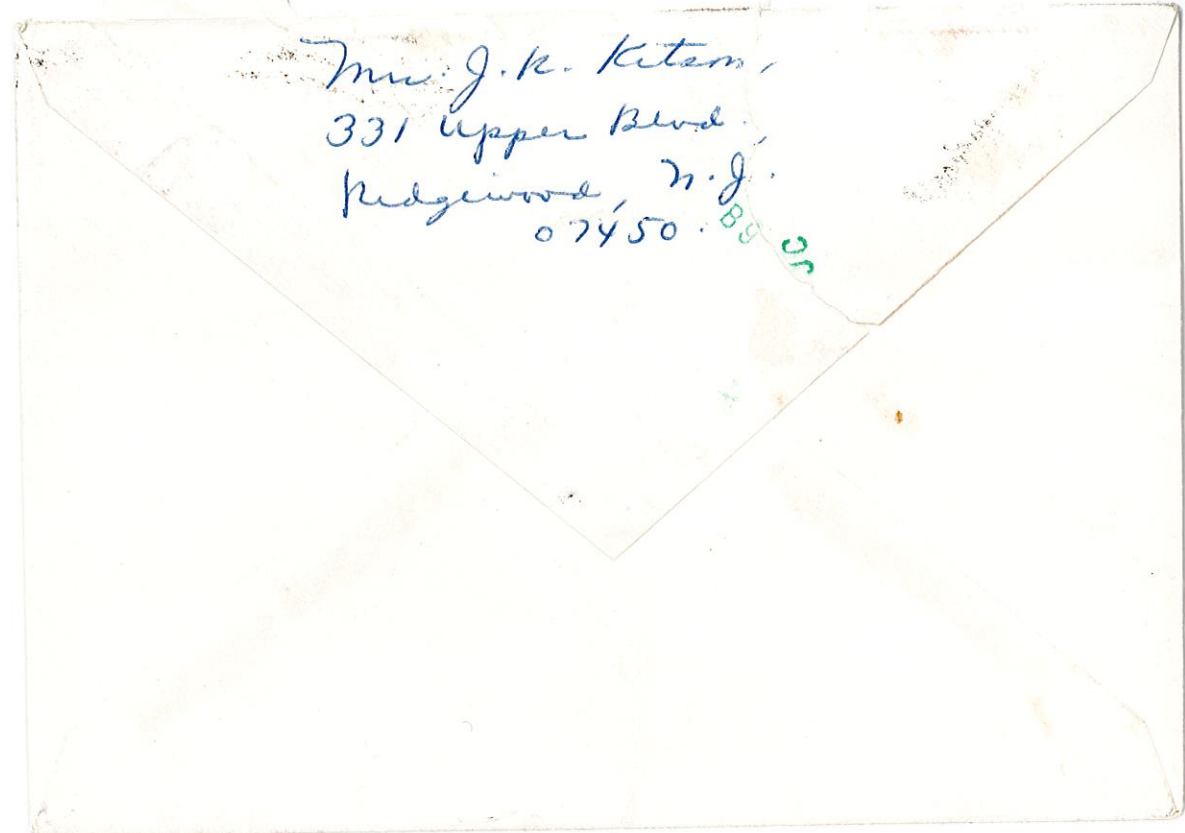 Mrs. J. R. Kitson,
331 Upper Blvd.,
Ridgewood, N.J.
07450.